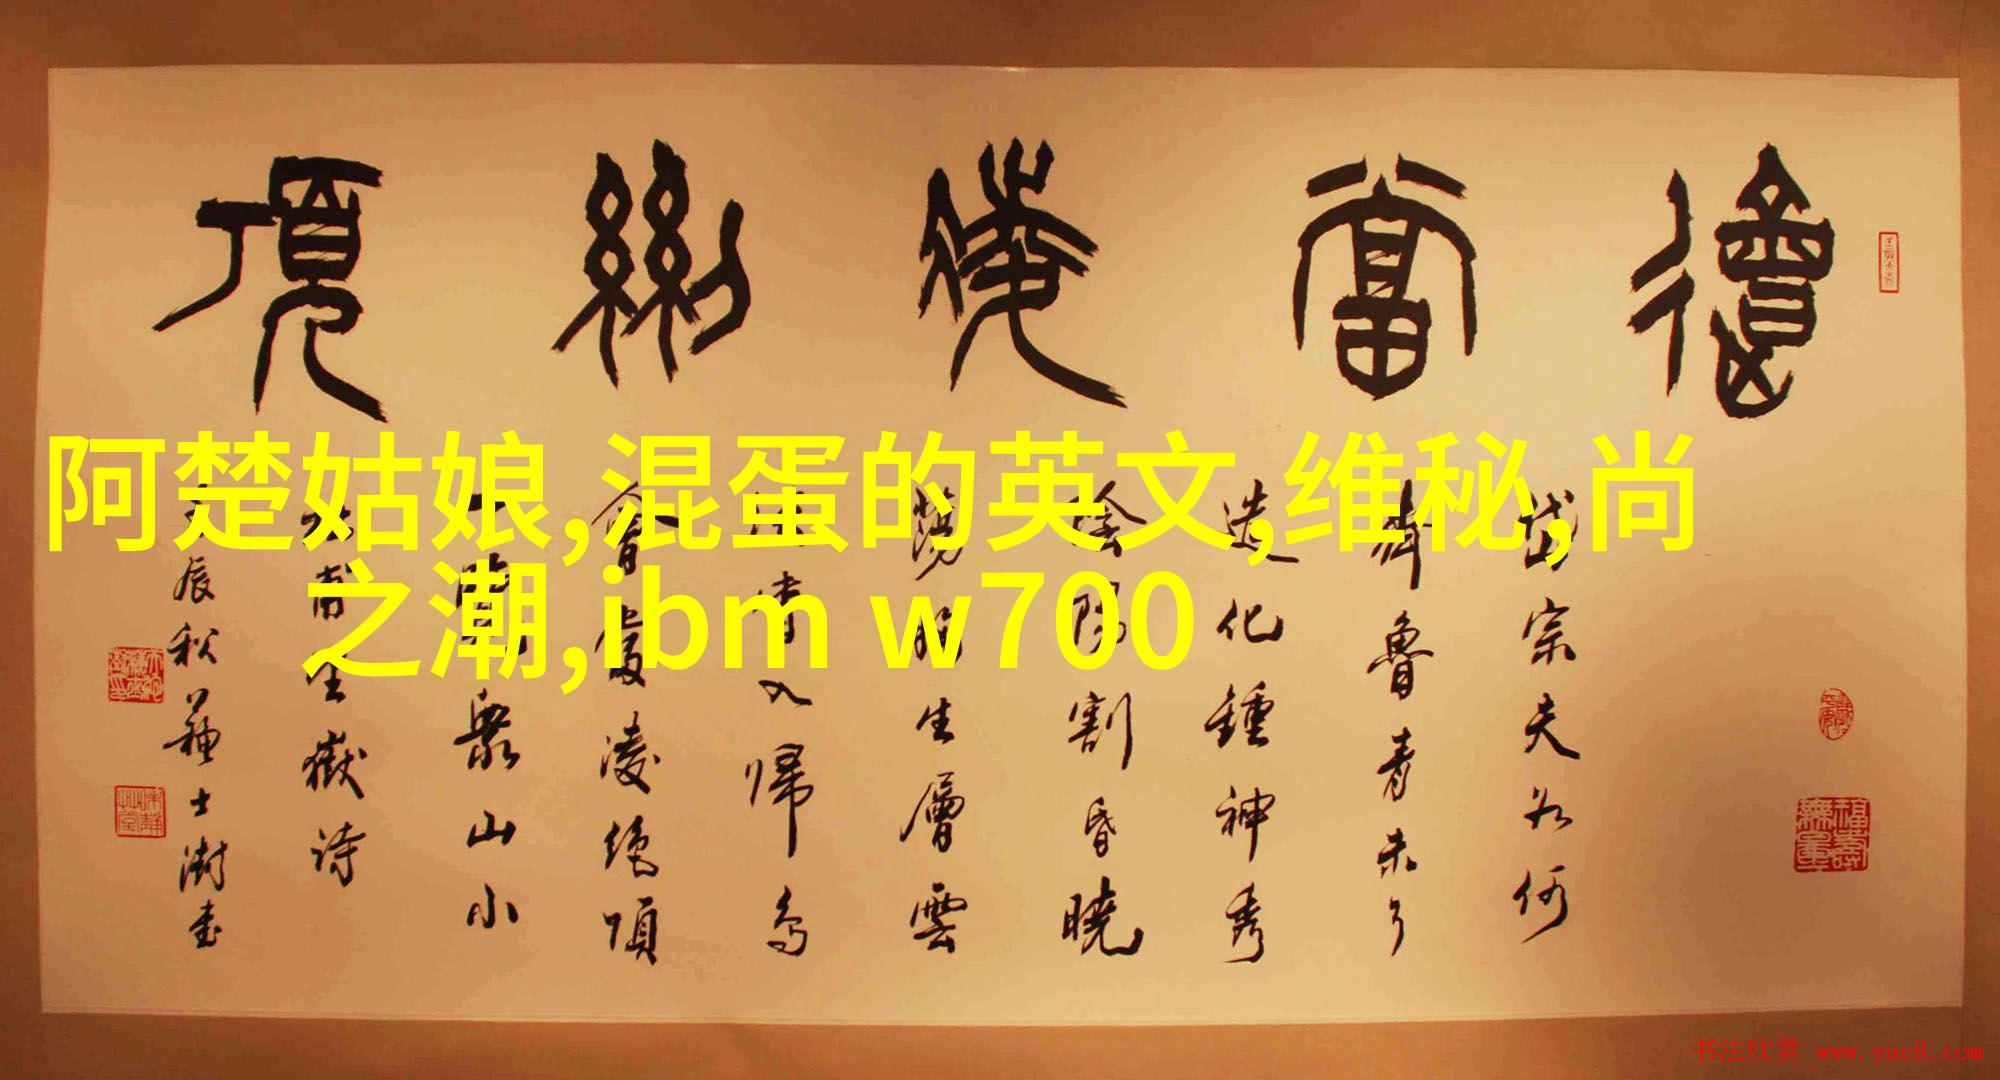 會當凌絶頂
岱宗夫如何
齊魯青未了
造化鍾神秀
陰陽割昏曉
蕩胸生層雲
決眥入歸鳥
會當凌絶頂
一覽衆山小
杜甫望嶽詩
壬辰秋蘇士澍書
福壽無量
阿楚姑娘,混蛋的英文,维秘,尚
之潮,ibm w700
书法欣赏 www.yac8.com